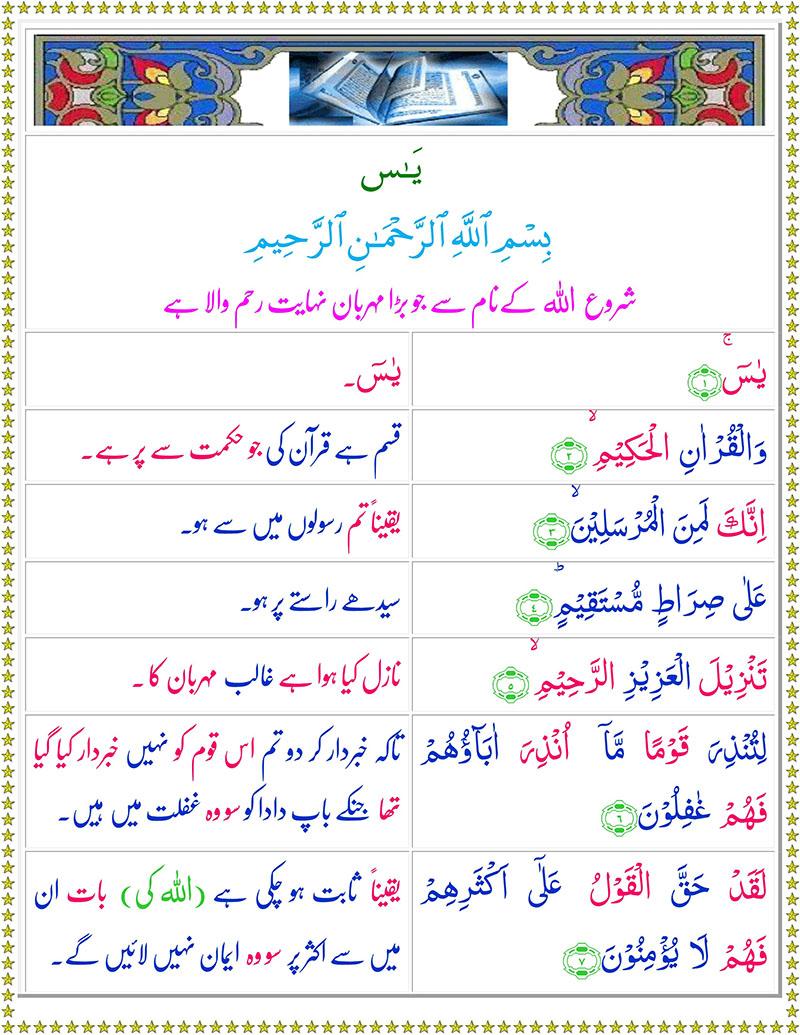 يَـٰس
بِسْمِ ٱللَّهِ ٱلرَّحْمَـٰنِ ٱلرَّحِيمِ
شروع اللہ کے نام سے جو بڑا مہربان نہایت رحم والا ہے
يٰسٓ ۚ ﴿١﴾
یٰسٓ۔
وَالْقُرْاٰنِ الْحَكِيْمِ ۙ ﴿٢﴾
قسم ہے قرآن کی جو حکمت سے پر ہے۔
اِنَّكَ لَمِنَ الْمُرْسَلِيْنَ ۙ ﴿٣﴾
یقیناً تم رسولوں میں سے ہو۔
عَلٰى صِرَاطٍ مُّسْتَقِيْمٍ ؕ ﴿٤﴾
سیدھے راستے پر ہو۔
تَنْزِيْلَ الْعَزِيْزِ الرَّحِيْمِ ۙ ﴿٥﴾
نازل کیا ہوا ہے غالب مہربان کا۔
لِتُنْذِرَ قَوْمًا مَّاۤ اُنْذِرَ اٰبَآؤُهُمْ
فَهُمْ غٰفِلُوْنَ ﴿٦﴾
تاکہ خبردار کر دو تم اس قوم کو نہیں خبردار کیا گیا
تھا جنکے باپ دادا کو سو وہ غفلت میں ہیں۔
لَقَدْ حَقَّ الْقَوْلُ عَلٰٓى اَكْثَرِهِمْ
فَهُمْ لَا يُؤْمِنُوْنَ ﴿٧﴾
یقیناً ثابت ہو چکی ہے (اللہ کی) بات ان
میں سے اکثر پر سو وہ ایمان نہیں لائیں گے۔